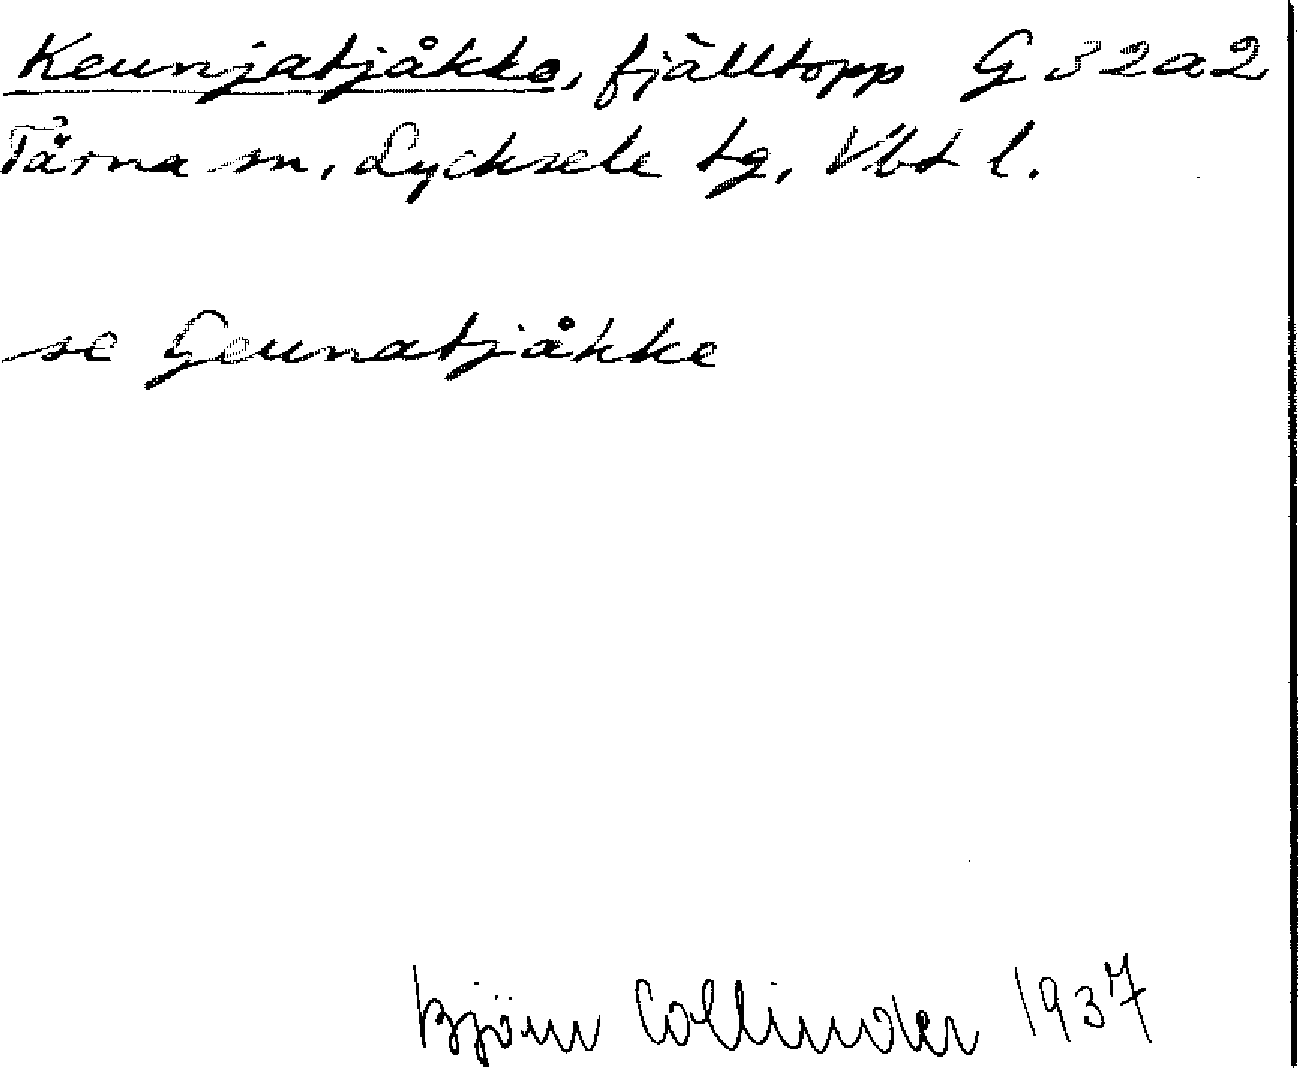 Keunjatjåkko, fjälltopp G 32a2
Tärna sn, Lycksele lg, Vbt l.
se Geunatjåkke
Björn Collinder 1937